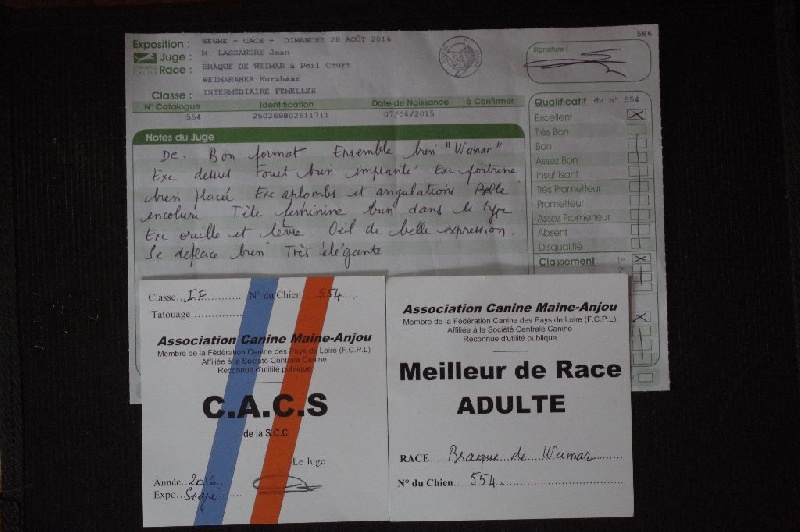 586
Exposition : SEGRE - CACS - DIMANCHE 28 AOÛT 2016
Juge : M. LASSANDRE Jean
Race : BRAQUE DE WEIMAR à Poil Court
WEIMARANER Kurzhaar
Classe : INTERMEDIAIRE FEMELLES
Signature :
N° Catalogue Identification Date de Naissance à Confirmer
554 250269802611713 07/04/2015
Notes du Juge
DC. Bon format Ensemble bon "Weimar"
Exc dessus Fouet bien implanté Exc poitrine
bien placé Exc aplombs et angulations Belle
encolure Tête féminine bien dans le type
Exc oreille et lèvre Oeil de belle expression.
Se déplace bien Très élégante
Qualificatif du n° 554
Excellent
Très Bon
Bon
Assez Bon
Insuffisant
Très Prometteur
Prometteur
Assez Prometteur
Absent
Disqualifié
Classement 1er
Classe I F N° du Chien 554
Tatouage
Association Canine Maine-Anjou
Membre de la Fédération Canine des Pays de Loire (F.C.P.L)
Affiliée à la Société Centrale Canine
Reconnue d'utilité publique
C.A.C.S
de la S.C.C
Le Juge
Année 2016
Expo Segré
Association Canine Maine-Anjou
Membre de la Fédération Canine des Pays de Loire (F.C.P.L)
Affiliée à la Société Centrale Canine
Reconnue d'utilité publique
Meilleur de Race
ADULTE
RACE Braque de Weimar
N° du Chien 554